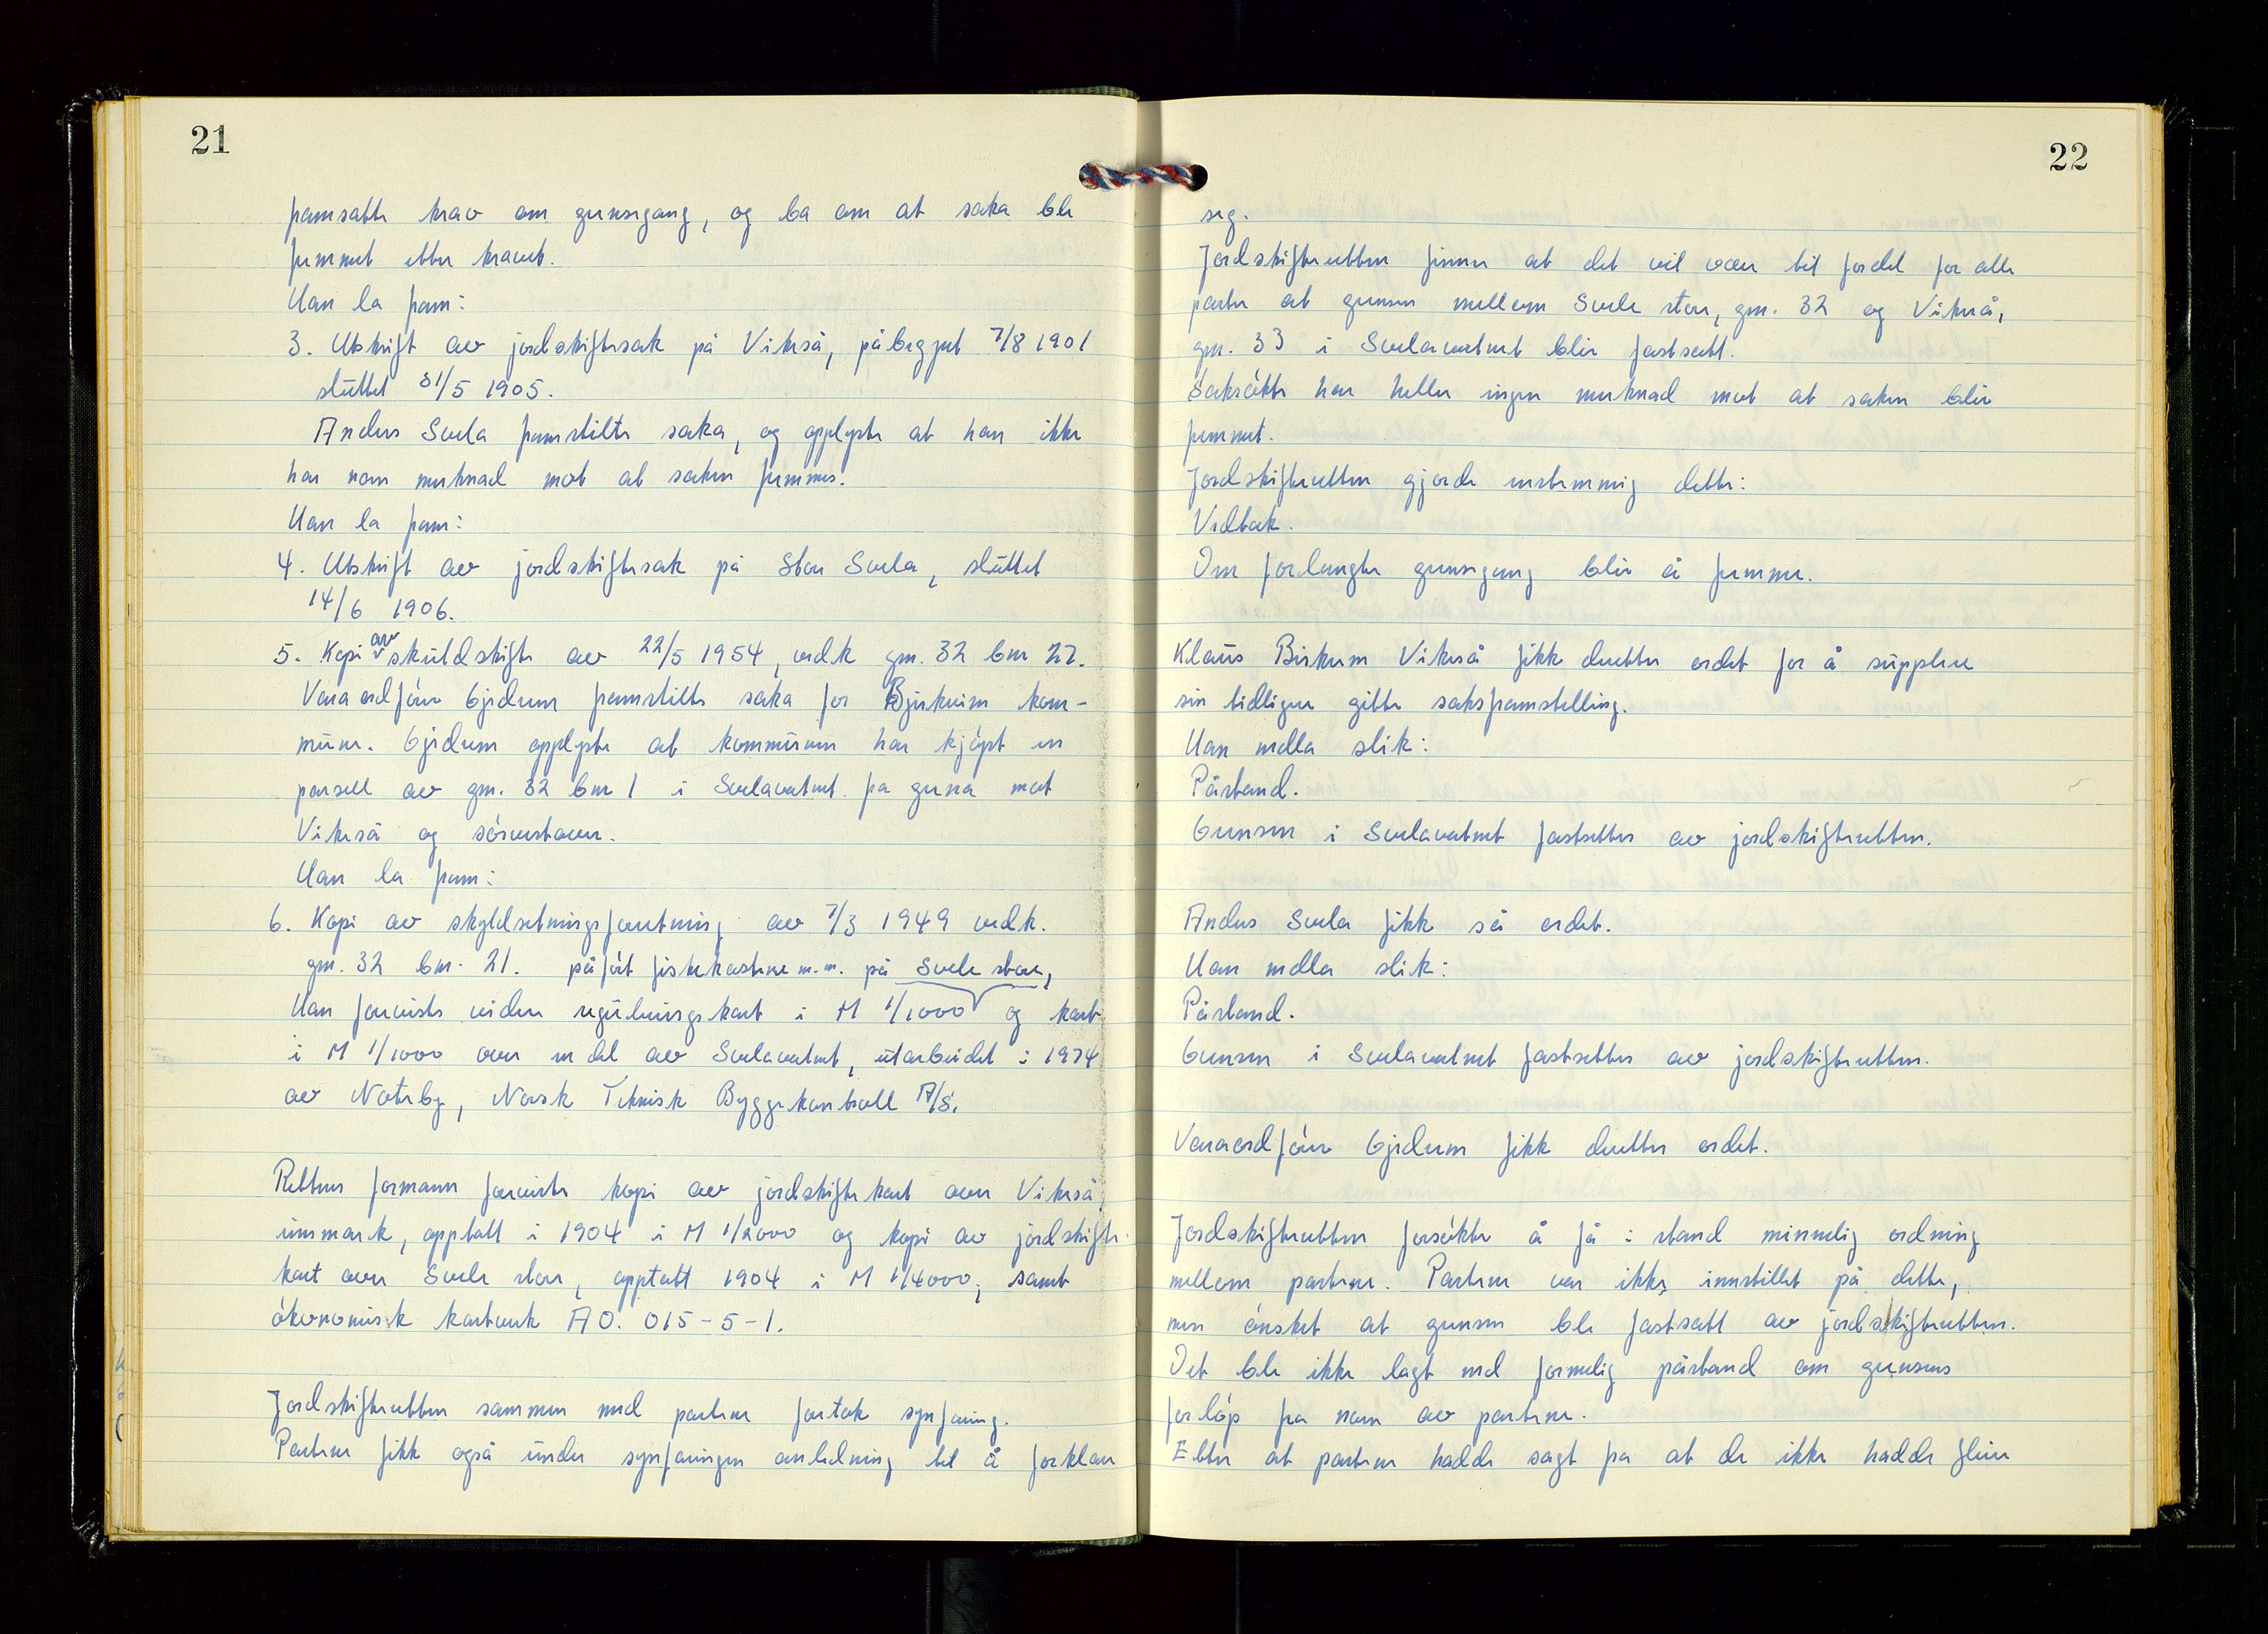 21
framsatte krav om grensegang, og ba om at saka ble
fremmet etter kravet.
Han la fram:
3. Utskrift av jordskiftesak på Vikeså, påbegynt 7/8 1901
sluttet 31/5 1905.
Anders Svela framstilte saka, og opplyste at han ikke
har noen merknad mot at saken fremmes.
Han la fram:
4. Utskrift av jordskiftesak på store Svela, sluttet
14/6 1906.
5. Kopi av skuldskifte av 22/5 1954, vedk gnr. 32 bnr 22.
Varaordfører Gjedrem framstilte saka for Bjerkreim kom-
mune. Gjedrem opplyste at kommunen har kjøpt en
parsell av gnr. 32 bnr 1 i Svelavatnet fra grensa mot
Vikeså og sørvestover.
Han la fram:
6. Kopi av skyldsetningsforretning av 7/3 1949 vedk.
gnr. 32 bnr. 21. påført fiskekastene m.m. på Svele store,
Han foreviste videre reguleringskart i M 1/1000 og kart
i M 1/1000 over en del av Svelavatnet, utarbeidet i 1974
av Noteby, Norsk Teknisk Byggekontroll A/S.
Rettens formann foreviste kopi av jordskiftekart over Vikeså,
innmark, opptatt i 1904 i M 1/2000 og kopi av jordskifte-
kart over Svele store, opptatt 1904 i M 1/4000, samt
økonomisk kartverk AO. 015-5-1.
Jordskifteretten sammen med partene foretok synfaring.
Partene fikk også under synfaringen anledning til å forklare
22
seg.
Jordskifteretten finner at det vil være til fordel for alle
parter at grensen mellom Svele store, gnr. 32 og Vikeså,
gnr. 33 i Svelavatnet blir fastsatt.
Saksøkte har heller ingen merknad mot at saken blir
fremmet.
Jordskifteretten gjorde enstemmig dette:
Vedtak.
Den forlangte grensegang blir å fremme.
Klaus Birkrem Vikeså fikk deretter ordet for å supplere
sin tidligere gitte saksframstilling.
Han nedla slik:
Påstand.
Grensen i Svelavatnet fastsettes av jordskifteretten.
Anders Svela fikk så ordet.
Han nedla slik:
Påstand.
Grensen i Svelavatnet fastsettes av jordskifteretten.
Varaordfører Gjedrem fikk deretter ordet.
Jordskifteretten forsøkte å få i stand minnelig ordning
mellom partene. Partene var ikke innstillet på dette,
men ønsket at grensen ble fastsatt av jordskifteretten.
Det ble ikke lagt ned formelig påstand om grensens
forløp fra noen av partene.
Etter at partene hadde sagt fra at de ikke hadde flere